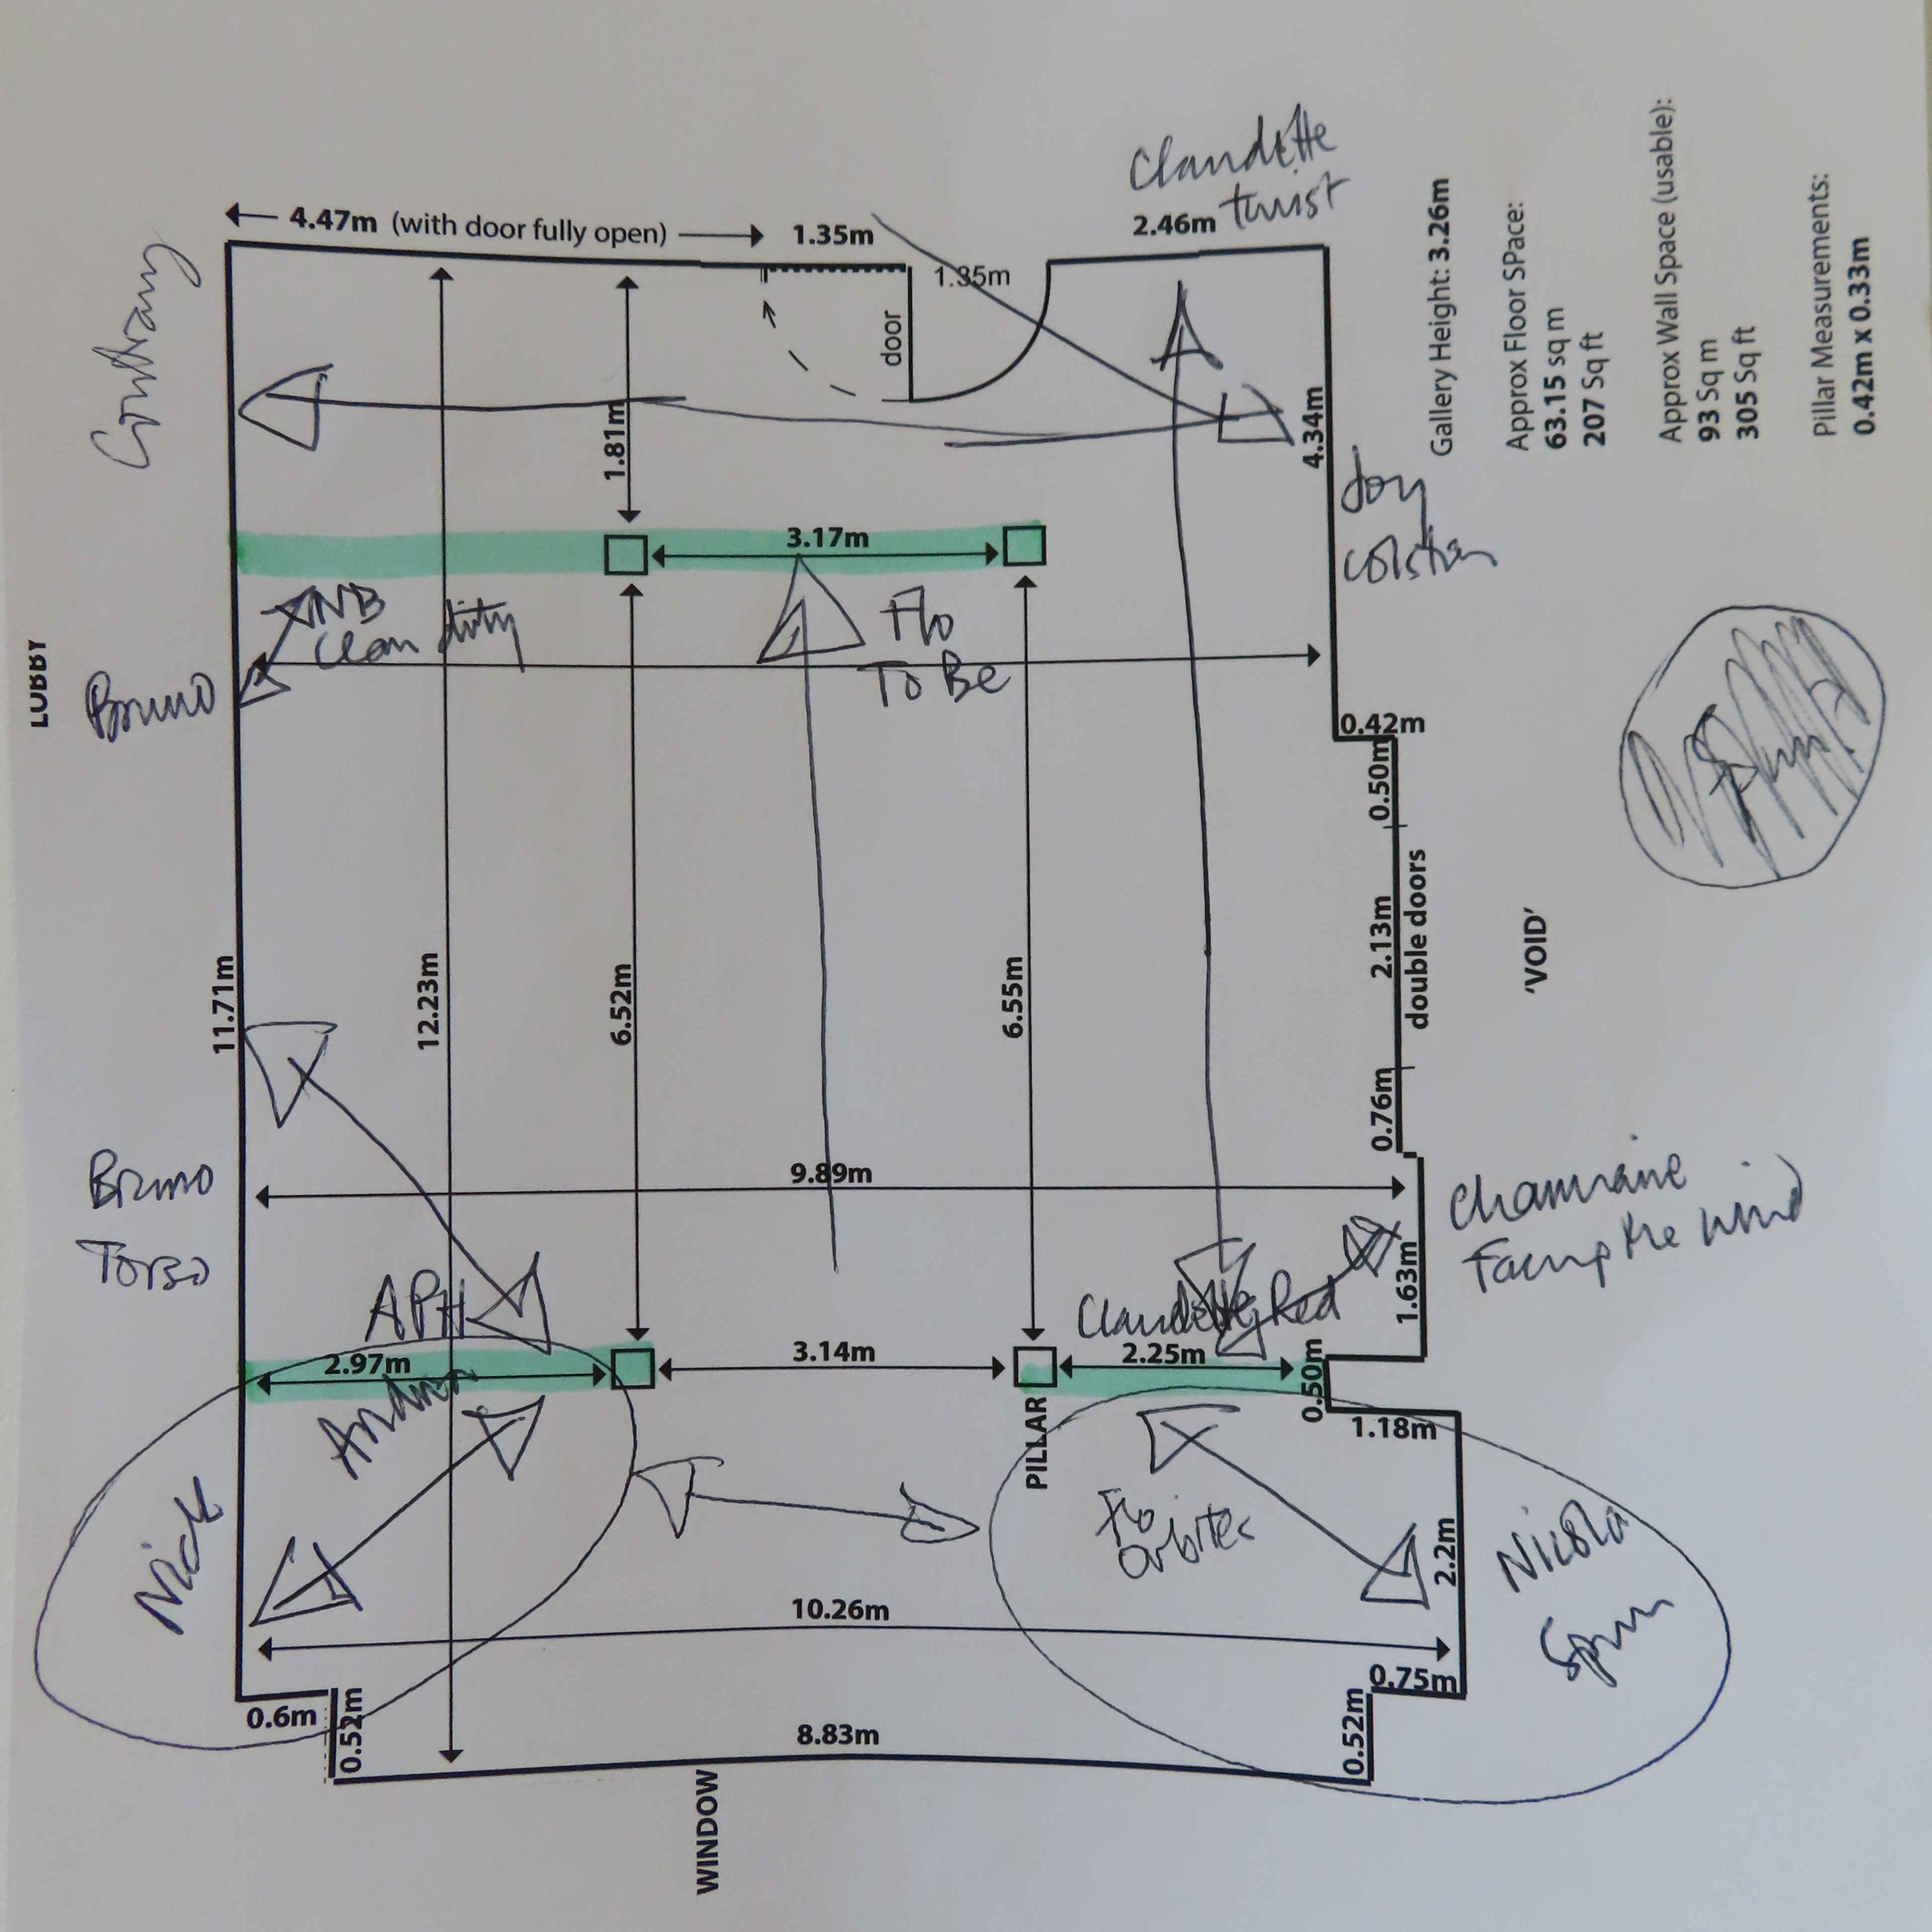 Claudette
twist
4.47m (with door fully open)
1.35m
2.46m
1.35m
door
1.81m
4.34m
Joy
Colston
3.17m
NB
Clean dirty
Flo
To Be
Bruno
LOBBY
0.42m
0.50m
2.13m
double doors
0.76m
'VOID'
11.71m
12.23m
6.52m
6.55m
9.89m
Bruno
Torso
APH
Claudette Red
Charmaine
Facing the Wind
1.63m
2.97m
3.14m
2.25m
0.50m
1.18m
PILLAR
Nick
Flo
Orbites
Nicola
Spun
2.2m
10.26m
0.75m
0.6m
0.52m
8.83m
0.52m
WINDOW
Gallery Height: 3.26m
Approx Floor SPace:
63.15 sq m
207 Sq ft
Approx Wall Space (usable):
93 Sq m
305 Sq ft
Pillar Measurements:
0.42m x 0.33m